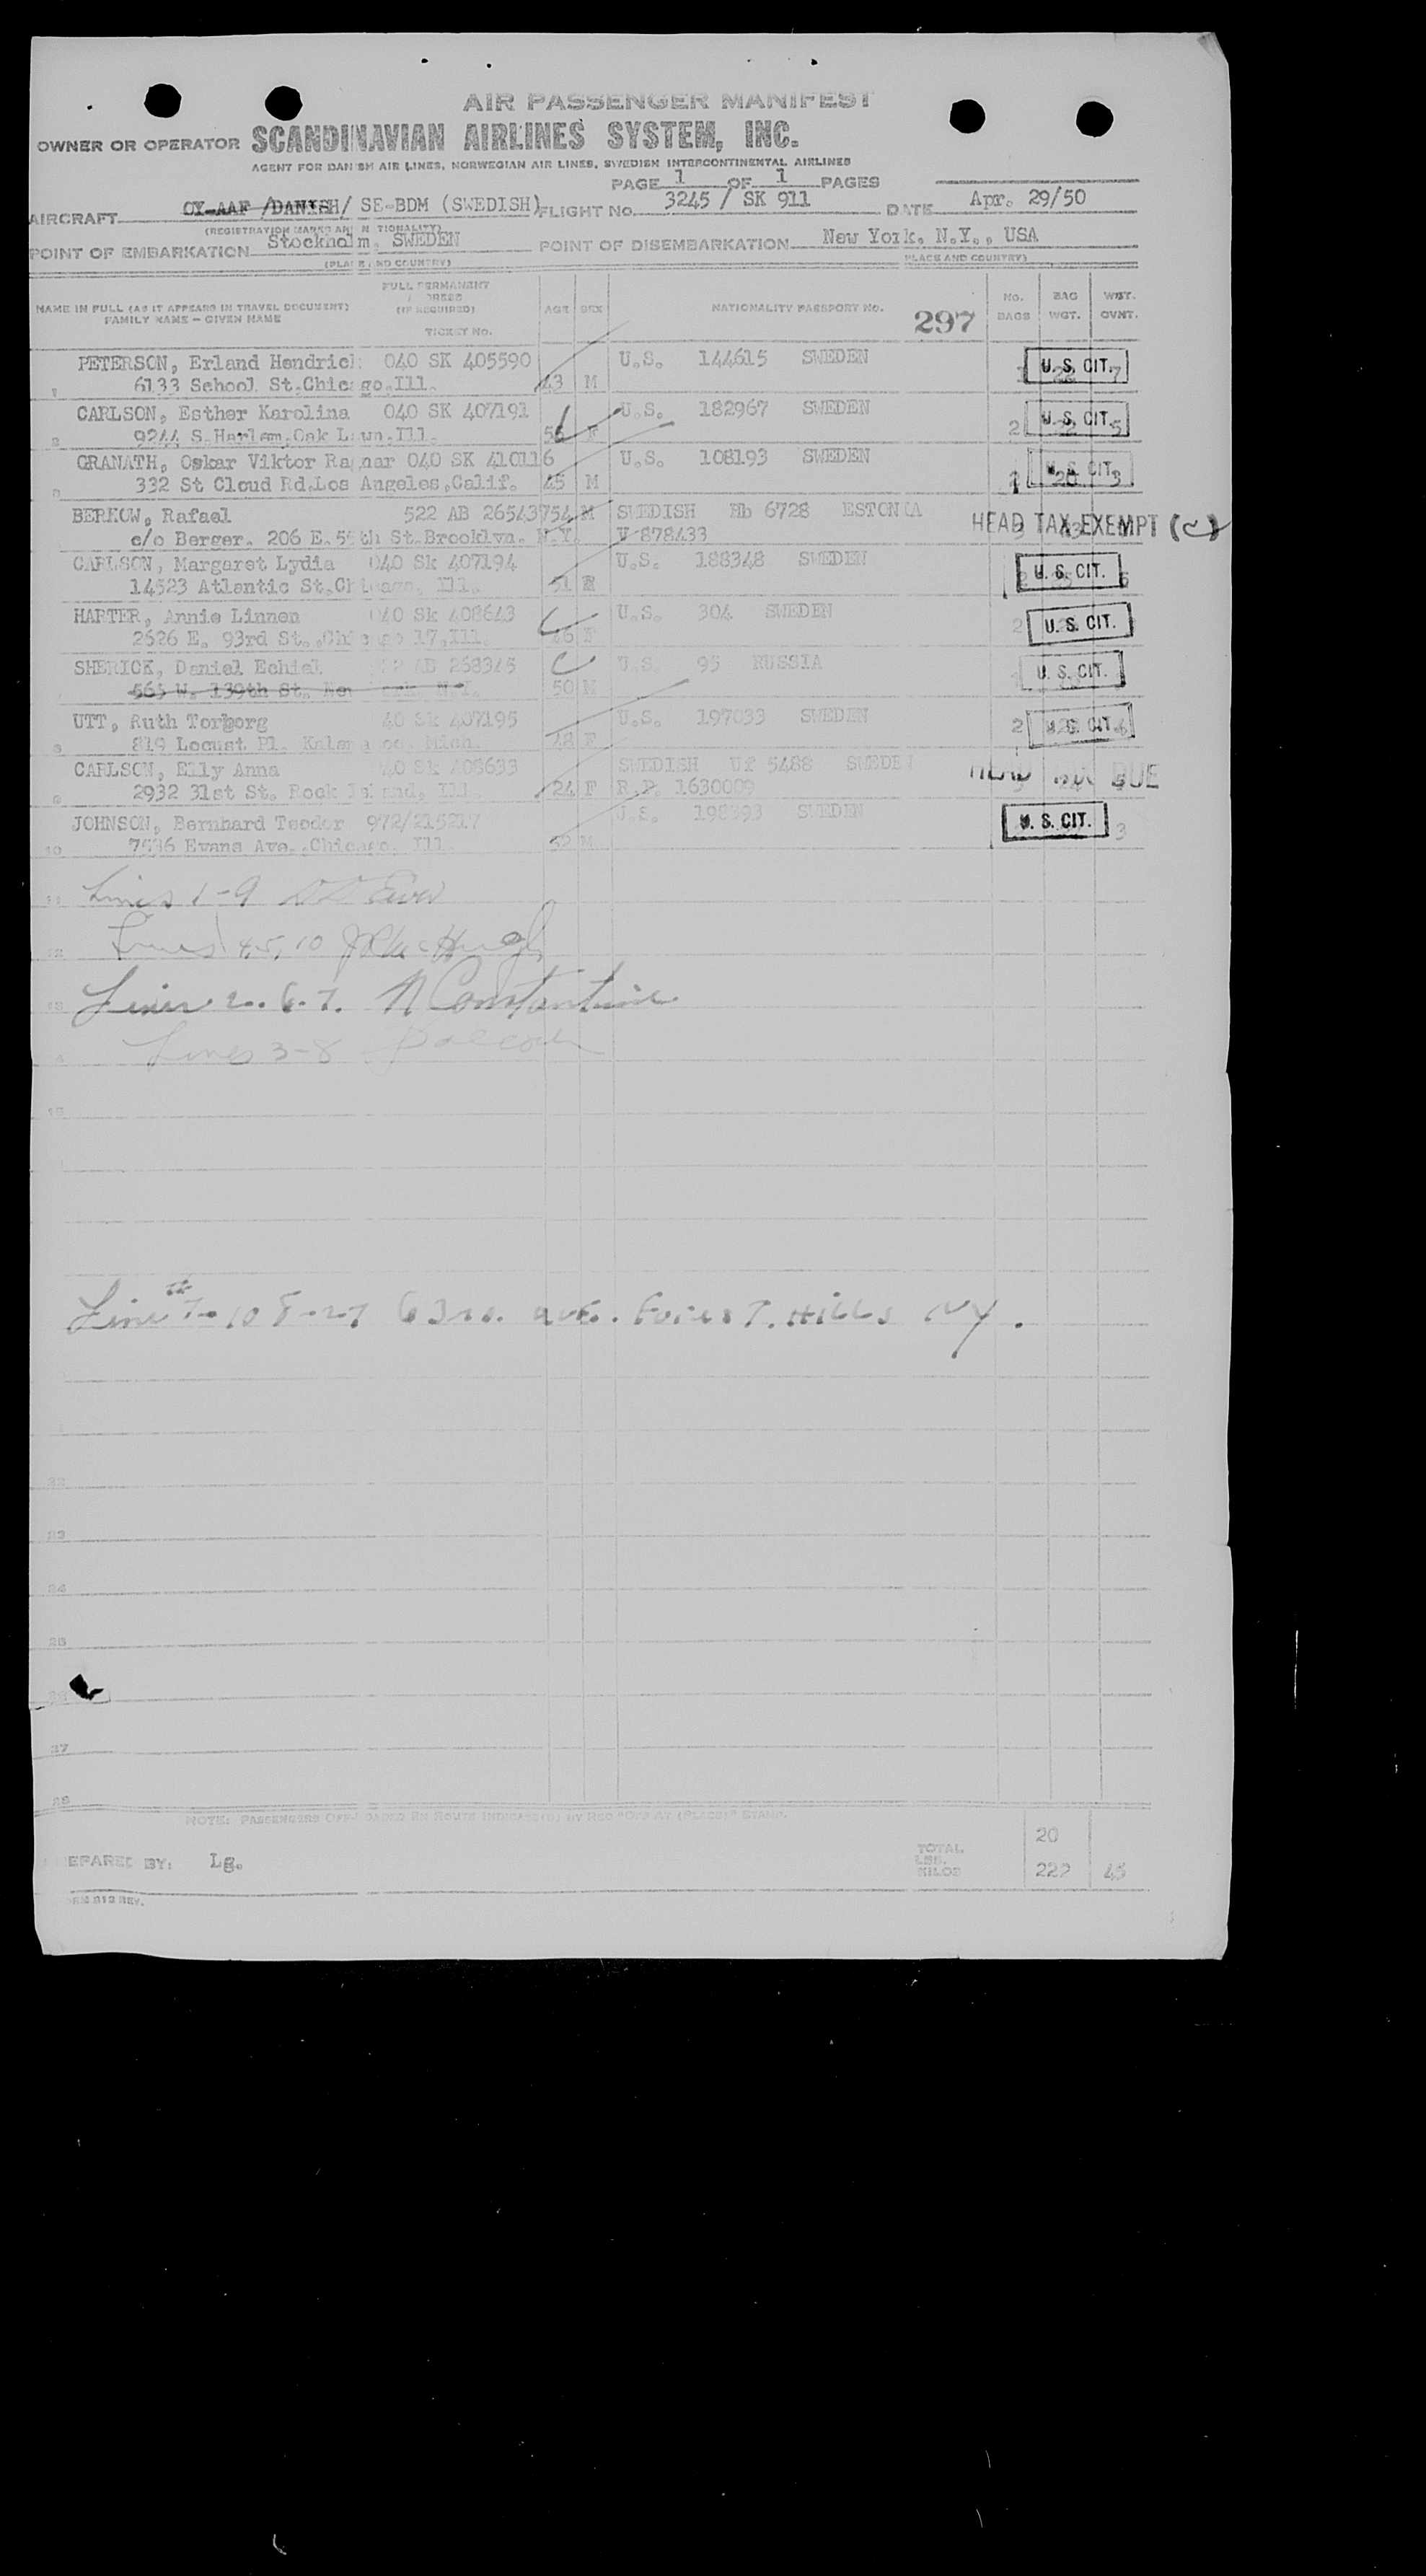 AIR PASSENGER MANIFEST
OWNER OR OPERATOR SCANDINAVIAN AIRLINES SYSTEM, INC.
AGENT FOR DANISH AIR LINES, NORWEGIAN AIR LINES, SWEDISH INTERCONTINENTAL AIRLINES
PAGE 1 OF 1 PAGES
AIRCRAFT OY-AAF /DANISH/ SE-BDM (SWEDISH) FLIGHT No. 3245 / SK 911 DATE Apr. 29/50
(REGISTRATION MARKS AND NATIONALITY)
POINT OF EMBARKATION Stockholm, SWEDEN POINT OF DISEMBARKATION New York, N.Y., USA
(PLACE AND COUNTRY) PLACE AND COUNTRY)
NAME IN FULL (AS IT APPEARS IN TRAVEL DOCUMENT) FAMILY NAME - GIVEN NAME
FULL PERMANENT ADDRESS (IF REQUIRED) TICKET No.
AGE SEX NATIONALITY PASSPORT No. 297 No. BAGS BAG WGT. WGT. OVWT.
PETERSON, Erland Hendrick 040 SK 405590 U.S. 144615 SWEDEN U.S. CIT. 7
1 6133 School St.Chicago.Ill. 43 M
CARLSON, Esther Karolina 040 SK 407191 U.S. 182967 SWEDEN 2 U.S. CIT. 5
2 9244 S.Harlem.Oak Lawn.Ill. 56 F
GRANATH, Oskar Viktor Ragnar 040 SK 410116 U.S. 108193 SWEDEN 1 U.S. CIT. 20 3
332 St Cloud Rd.Los Angeles.Calif. 45 M
BERKOW, Rafael 522 AB 265437 54 M SWEDISH Hb 6728 ESTONIA HEAD TAX EXEMPT (C)
c/o Berger. 206 E.55th St.Brooklyn. N.Y. V 878433
CARLSON, Margaret Lydia 040 Sk 407194 U.S. 188348 SWEDEN U.S. CIT.
14523 Atlantic St.Chicago. Ill. 51 F
HARTER, Annie Linnen 040 Sk 408643 U.S. 304 SWEDEN 2 U.S. CIT.
2626 E. 93rd St.,Chicago 17,Ill. F
SHERICK, Daniel Echiel AB 268345 U.S. 95 RUSSIA U.S. CIT.
565 W. 139th St. New York N.Y. 50 M
UTT, Ruth Torborg 040 Sk 407195 U.S. 197033 SWEDEN 2 U.S. CIT. 6
8 819 Locust Pl. Kalamazoo. Mich. 48 F
CARLSON, Elly Anna 040 Sk 408633 SWEDISH Uf 5488 SWEDEN HEAD TAX DUE
9 2932 31st St. Rock Island, Ill. 24 F R.P. 1630009
JOHNSON, Bernhard Teodor 972/215217 U.S. 198393 SWEDEN U.S. CIT. 3
10 7536 Evans Ave. Chicago. Ill. 52 M
11 Lines 1-9
12 Lines 4.5.10
13 Lines 2. 6. 7. N Constantine
Lines 3-8
15
Line #7- 108-27 63rd. ave. Forest. Hills NY.
22
23
24
25
26
27
28
NOTE: PASSENGERS OFF-LOADED EN ROUTE INDICATED BY RED "OFF AT (PLACE)" STAMP.
PREPARED BY: Lg.
TOTAL 20
LBS.
KILOS 222 45
FORM 812 REV.